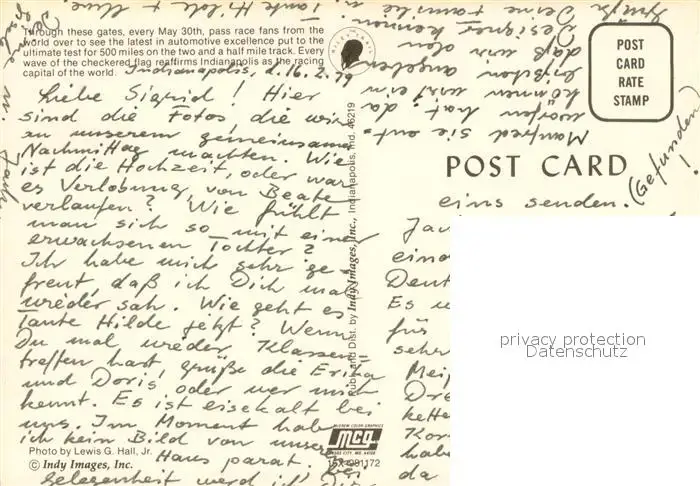 Through these gates, every May 30th, pass race fans from the
world over to see the latest in automotive excellence put to the
ultimate test for 500 miles on the two and a half mile track. Every
wave of the checkered flag reaffirms Indianapolis as the racing
capital of the world.
Indianapolis, d. 16.2.79
Liebe Sigrid! Hier
sind die Fotos die wir
an unserem gemeinsamen
Nachmittag machten. Wie
ist die Hochzeit, oder war
es Verlobung, von Beate
verlaufen? Wie fühlt
man sich so mit einer
erwachsenen Tochter?
Ich habe mich sehr ge-
freut, daß ich Dich mal
wieder sah. Wie geht es
Tante Hilde jetzt? Wenn
Du mal wieder Klassen-
treffen hast, grüße die Erika
und Doris oder wer mich
kennt. Es ist eisekalt bei
uns. Im Moment habe
ich kein Bild von unserem
Haus parat. Bei
Gelegenheit werd ich Dir
Photo by Lewis G. Hall, Jr.
© Indy Images, Inc.
Pub. and Dist. by Indy Images, Inc., Indianapolis, Ind. 46219
McGREW COLOR GRAPHICS
mcg
KANSAS CITY, MO. 64108
POST
CARD
RATE
STAMP
POST CARD
eins senden. (Gefunden)!
eine
Es
für
sehr
habe
da
Manfred sie ent-
worfen hat. da
können wir ein
bißchen angeben
daß wir den
Designer kennen.
Deine Familie
Tante Hilde +
privacy protection
Datenschutz